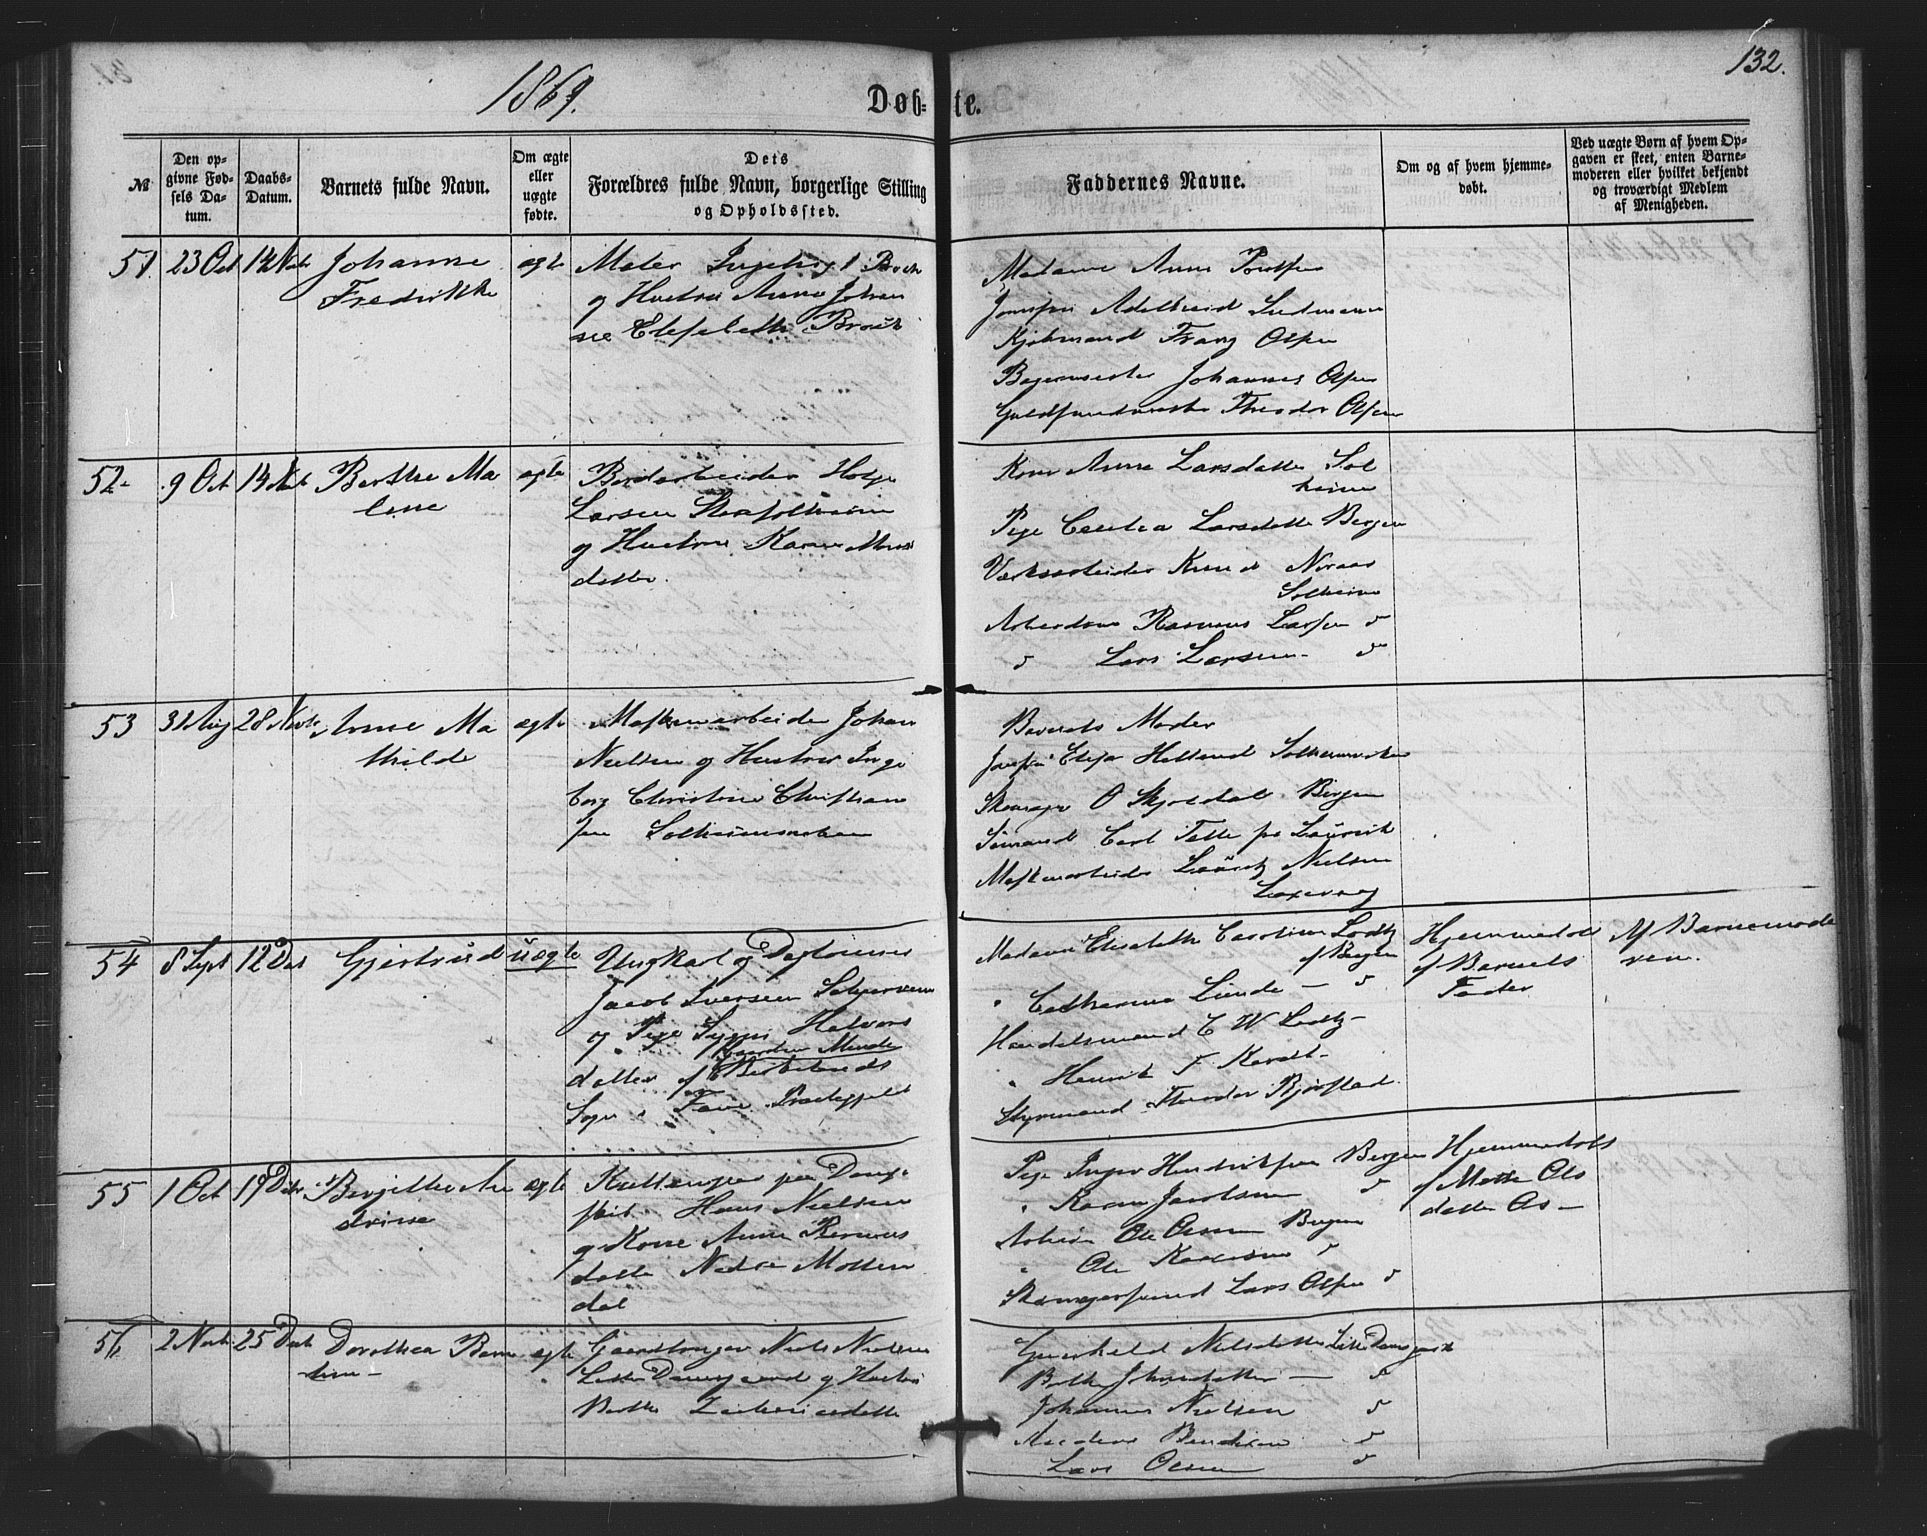 1869.
Døb=te.
132.
№
Den opgivne Fødsels Datum.
Daabs-Datum.
Barnets fulde Navn.
Om ægte eller uægte fødte.
Dets Forældres fulde Navn, borgerlige Stilling og Opholdssted.
Faddernes Navne.
Om og af hvem hjemmedøbt.
Ved uægte Børn af hvem Opgaven er skeet, enten Barnemoderen eller hvilket bekjendt og troværdigt Medlem af Menigheden.
51. 23 Oct 14 Novbr Johanne
Fredrikke
ægte
Maler Ingebrigt
og Hustru Anne Johan
ne Elisabeth
Madame Anne
Jomfru Adelheid
Kjøbmand Franz Olsen
Bagermester Johannes Olsen
Guldsmedmester Theodor Olsen
52. 9 Oct 14 Nvb Berthe Ma
lene
ægte
Bordarbeider Helge
Larsen
og Hustru Karen Mons
datter.
Kone Anne Larsdatter Sol
heim
Pige Cecilia Larsdatter Bergen
Værksarbeider Knud
Solheim
Arbeidsm Rasmus Larsen
Lars Larsen
53 31 Aug 28 Novbr Anne Ma
thilde
ægte
Maskinarbeider Johan
Nielsen og Hustru Inge
borg Christine Christian
sen Solheimsviken
Barnets Moder
Jomfru Elisa Helland Solheimsviken
Skomager O Skjoldal Bergen
Sømand Carl Telle fra Laurvik
Maskinarbeider Lauritz Nielsen
Laxevaag
54 8 Sept 12 Dec Gjertrud uægte
Ungkarl og Daglønner
Jacob Iversen
og Pige Halvors
Gaarden Minde
datter af Birkelands
Sogn i Fane Præstegjeld
Madame Elisabeth Caroline Lodtz
af Bergen
Catharina Linde
Handelsmand C W Lodtz
Henrik F
Styrmand Theodor
Hjemmedøbt
af Barnets
Fader
Af Barnemode
ren.
55 1 Oct 19 Decbr Bergithe An
drine
ægte
paa Damp
skib Hans Nielsen
og Kone Anne Rasmus
datter Nedre Møllen
dal
Pige Inger Henriksen Bergen
Karen Jacobsen
Arbeider Ole Bergen
Ole
Skomagersvend Lars Olsen
Hjemmedøbt
af Mette Ols
datter
56 2 Novbr 25 Decb Dorothea
ægte
Gaardbruger Niels Nielsen
Lille Damsgaard og Hustru
Berthe Zachariasdatter
Nilsdatter Lille Damsgaard
Johannes Nielsen
Lars Olsen